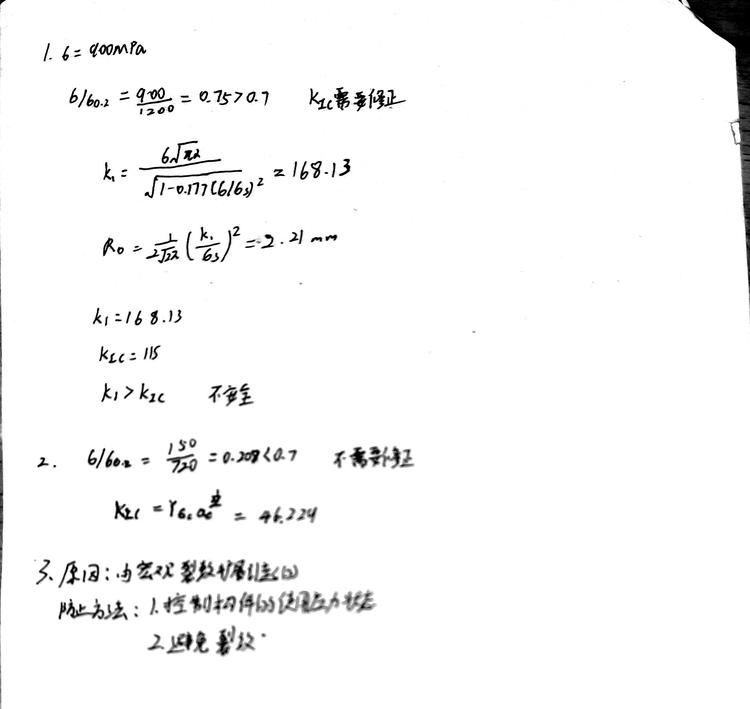 1. σ = 900MPa
σ/σ0.2 = 900/1200 = 0.75 > 0.7 KIC需要修正
k1 = σ√πa / √1-0.177(σ/σs)² = 168.13
R0 = 1/2√2π (k1/σs)² = 2.21 mm
k1 = 168.13
KIC = 115
k1 > kIC 不安全
2. σ/σ0.2 = 150/720 = 0.208 < 0.7 不需要修正
KIC = Yσc ac^½ = 46.229
3. 原因: 由宏观裂纹扩展引起的
防止方法: 1. 控制构件的使用应力状态
2. 避免裂纹.